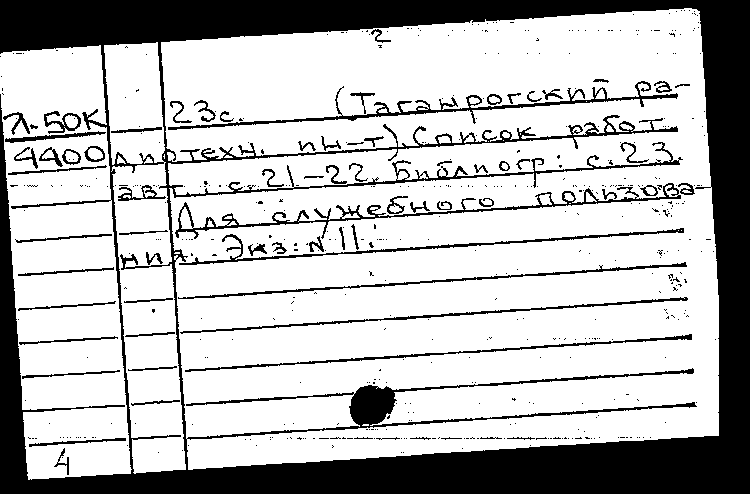 2
Л-50К 23с. (Таганрогский ра-
4400 диотехн. ин-т). Список работ
авт.: с. 21-22. Библиогр: с. 23.
Для служебного пользова-
ния. Экз: N 11.
4